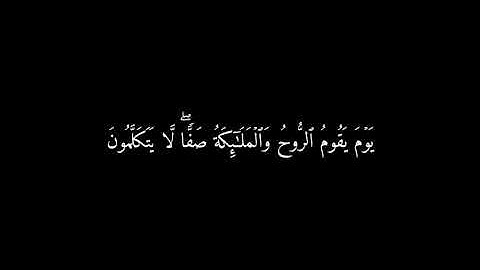 يَوْمَ يَقُومُ ٱلرُّوحُ وَٱلْمَلَـٰٓئِكَةُ صَفًّۭا ۖ لَّا يَتَكَلَّمُونَ